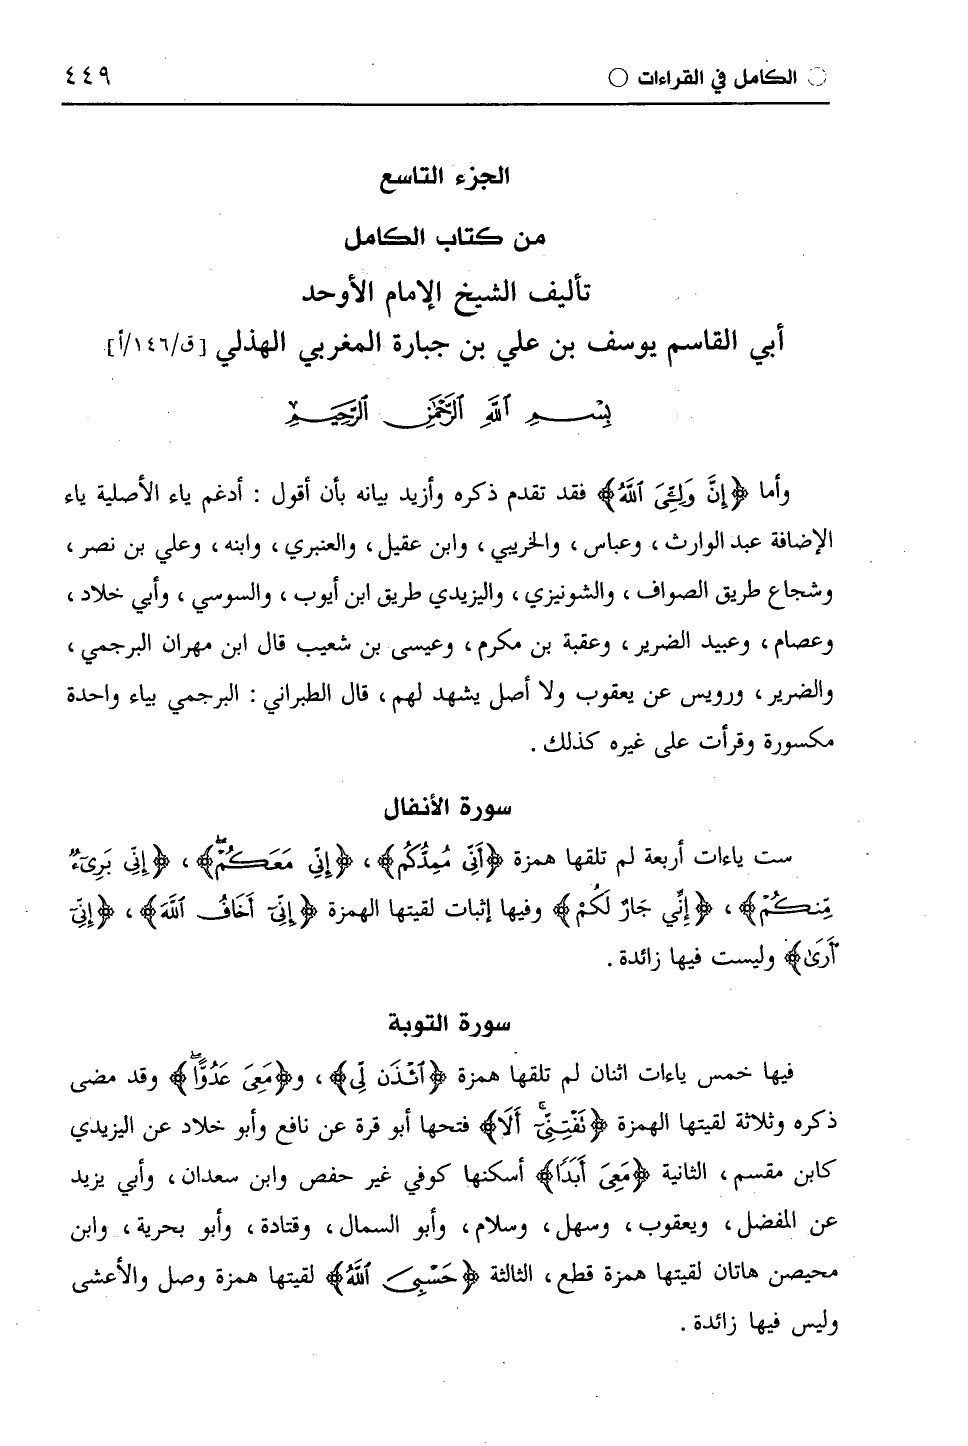 الكامل في القراءات ٤٤٩
الجزء التاسع
من كتاب الكامل
تأليف الشيخ الإمام الأوحد
أبي القاسم يوسف بن علي بن جبارة المغربي الهذلي [ق/١٤٦/أ]
بِسْمِ ٱللَّهِ ٱلرَّحْمَٰنِ ٱلرَّحِيمِ
وأما ﴿إِنَّ وَلِـِّۧيَ ٱللَّهُ﴾ فقد تقدم ذكره وأزيد بيانه بأن أقول : أدغم ياء الأصلية ياء
الإضافة عبد الوارث ، وعباس ، والخريبي ، وابن عقيل ، والعنبري ، وابنه ، وعلي بن نصر ،
وشجاع طريق الصواف ، والشونيزي ، واليزيدي طريق ابن أيوب ، والسوسي ، وأبي خلاد ،
وعصام ، وعبيد الضرير ، وعقبة بن مكرم ، وعيسى بن شعيب قال ابن مهران البرجمي ،
والضرير ، ورويس عن يعقوب ولا أصل يشهد لهم ، قال الطبراني : البرجمي بياء واحدة
مكسورة وقرأت على غيره كذلك .
سورة الأنفال
ست ياءات أربعة لم تلقها همزة ﴿أَنِّي مُمِدُّكُم﴾ ، ﴿إِنِّي مَعَكُمْۖ﴾ ، ﴿إِنِّي بَرِيٓءٌ
مِّنكُمْ﴾ ، ﴿إِنِّي جَارٌ لَكُمْ﴾ وفيها إثبات لقيتها الهمزة ﴿إِنِّيٓ أَخَافُ ٱللَّهَ﴾ ، ﴿إِنِّيٓ
أَرَىٰ﴾ وليست فيها زائدة .
سورة التوبة
فيها خمس ياءات اثنان لم تلقها همزة ﴿ٱئْذَن لِّي﴾ ، و﴿مَعِيَ عَدُوًّاۖ﴾ وقد مضى
ذكره وثلاثة لقيتها الهمزة ﴿تَفْتِنِّيٓۚ أَلَا﴾ فتحها أبو قرة عن نافع وأبو خلاد عن اليزيدي
كابن مقسم ، الثانية ﴿مَعِيَ أَبَدًا﴾ أسكنها كوفي غير حفص وابن سعدان ، وأبي يزيد
عن المفضل ، ويعقوب ، وسهل ، وسلام ، وأبو السمال ، وقتادة ، وأبو بحرية ، وابن
محيصن هاتان لقيتها همزة قطع ، الثالثة ﴿حَسْبِيَ ٱللَّهُ﴾ لقيتها همزة وصل والأعشى
وليس فيها زائدة .